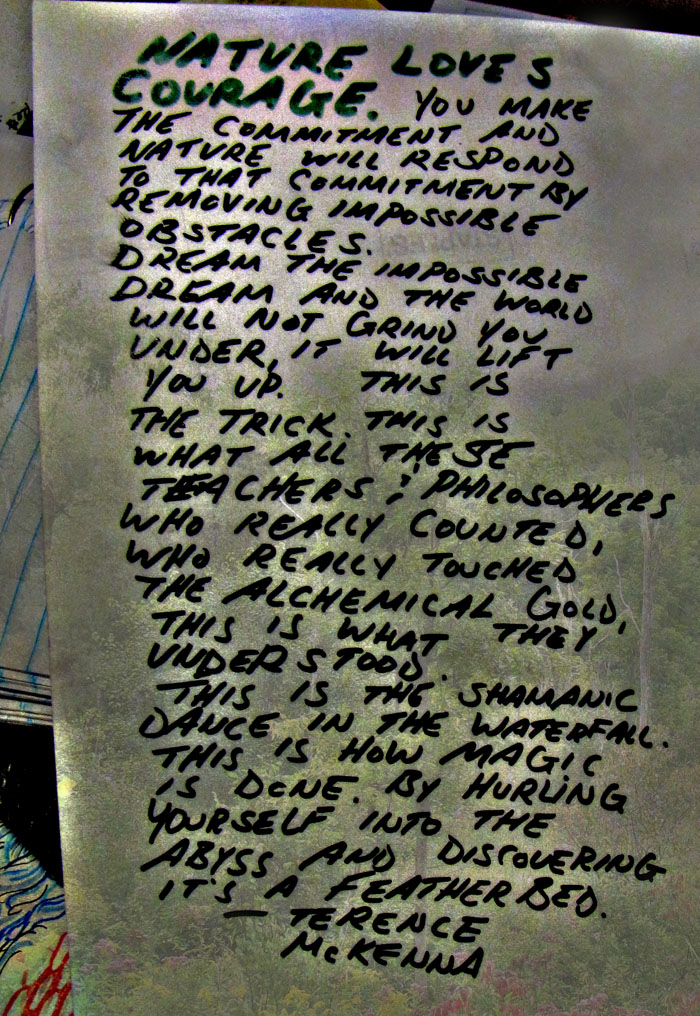 NATURE LOVES
COURAGE. YOU MAKE
THE COMMITMENT AND
NATURE WILL RESPOND
TO THAT COMMITMENT BY
REMOVING IMPOSSIBLE
OBSTACLES.
DREAM THE IMPOSSIBLE
DREAM AND THE WORLD
WILL NOT GRIND YOU
UNDER, IT WILL LIFT
YOU UP. THIS IS
THE TRICK. THIS IS
WHAT ALL THESE
TEACHERS & PHILOSOPHERS
WHO REALLY COUNTED,
WHO REALLY TOUCHED
THE ALCHEMICAL GOLD,
THIS IS WHAT THEY
UNDERSTOOD.
THIS IS THE SHAMANIC
DANCE IN THE WATERFALL.
THIS IS HOW MAGIC
IS DONE. BY HURLING
YOURSELF INTO THE
ABYSS AND DISCOVERING
IT'S A FEATHER BED.
— TERENCE
McKENNA